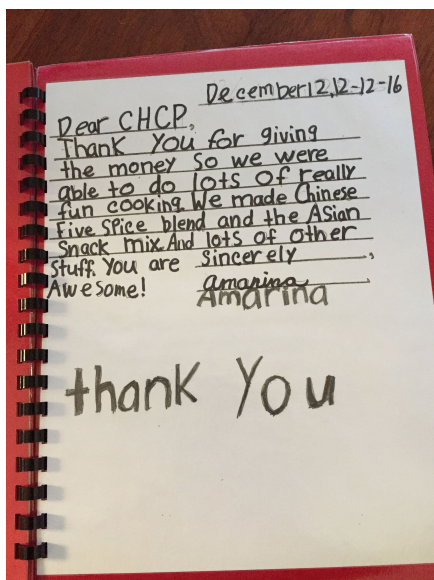 December 12, 12-12-16
Dear CHCP,
Thank You for giving
the money so we were
able to do lots of really
fun cooking. We made Chinese
Five Spice blend and the Asian
Snack mix And lots of other
Stuff. You are Sincerely,
Awesome! amarina.
Amarina
thank You